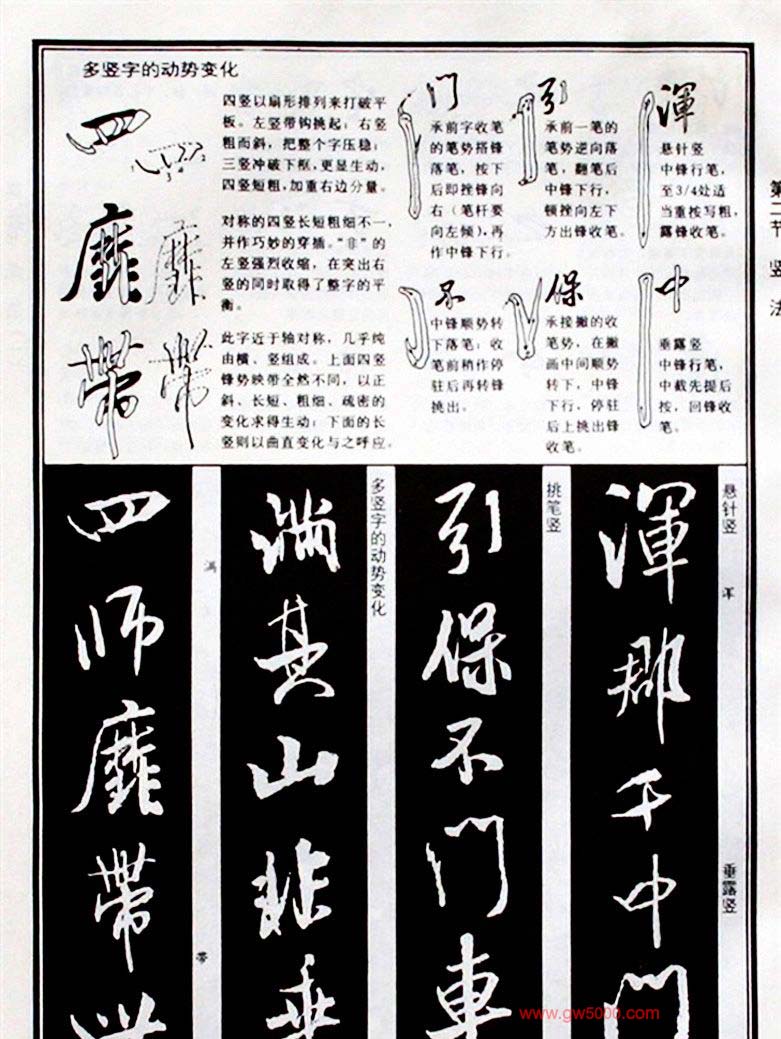 多竖字的动势变化
四
四竖以扇形排列来打破平
板。左竖带钩挑起；右竖
粗而斜，把整个字压稳；
三竖冲破下框，更显生动，
四竖短粗，加重右边分量。
靡
对称的四竖长短粗细不一，
并作巧妙的穿插。“非”的
左竖强烈收缩，在突出右
竖的同时取得了整字的平
衡。
帶
此字近于轴对称，几乎纯
由横、竖组成。上面四竖
锋势映带全然不同，以正
斜、长短、粗细、疏密的
变化求得生动；下面的长
竖则以曲直变化与之呼应。
门
承前字收笔
的笔势搭锋
落笔，按下
后即挫锋向
右（笔杆要
向左倾），再
作中锋下行。
引
承前一笔的
笔势逆向落
笔，翻笔后
中锋下行，
顿挫向左下
方出锋收笔。
渾
悬针竖
中锋行笔，
至3/4处适
当重按写粗，
露锋收笔。
不
中锋顺势转
下落笔；收
笔前稍作停
驻后再转锋
挑出。
保
承接撇的收
笔势，在撇
画中间顺势
转下，中锋
下行，停驻
后上挑出锋
收笔。
中
垂露竖
中锋行笔，
中截先提后
按，回锋收
笔。
第二节 竖法
悬针竖
渾
郡
千
垂露竖
中
門
挑笔竖
引
保
不
門
車
多竖字的动势变化
满
其
山
非
垂
四
师
靡
帶
www.gw5000.com